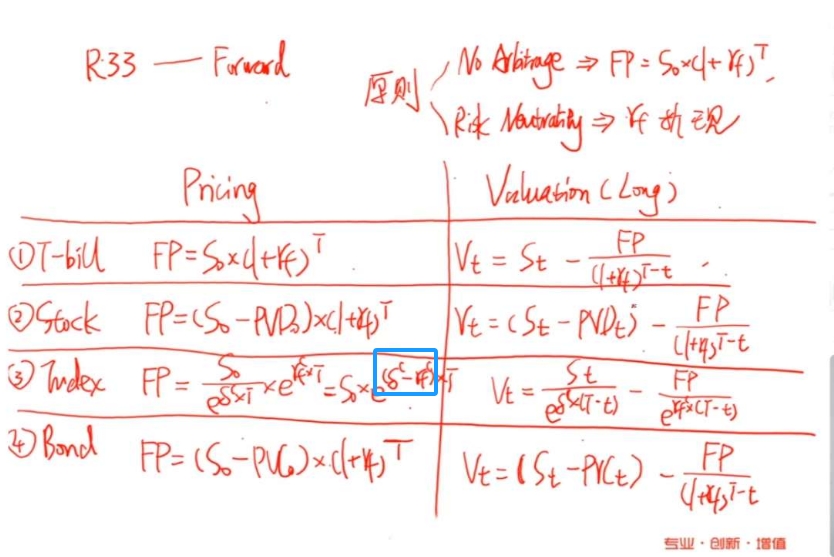 R33 — Forward
原则
No Arbitrage ⇒ FP = S₀×(1+rf)^T
Risk Neutrality ⇒ rf 折现
Pricing
Valuation (Long)
①T-bill FP=S₀×(1+rf)^T Vt = St − FP/(1+rf)^(T−t)
②Stock FP=(S₀−PVD₀)×(1+rf)^T Vt=(St−PVDt) − FP/(1+rf)^(T−t)
③Index FP = S₀/e^(δ^c×T) ×e^(rf^c×T) = S₀×e^((δ^c−rf^c)×T) Vt = St/e^(δ^c×(T−t)) − FP/e^(rf^c×(T−t))
④Bond FP=(S₀−PVC₀)×(1+rf)^T Vt=(St−PVCt) − FP/(1+rf)^(T−t)
专业·创新·增值